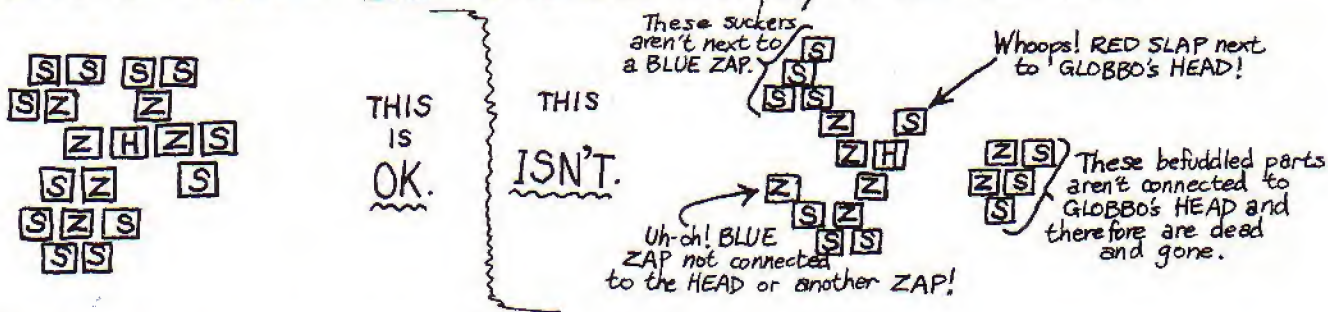 S S S S
S Z Z
Z H Z S
S Z S
S Z S
S S
THIS
IS
OK.
THIS
ISN'T.
These suckers
aren't next to
a BLUE ZAP.
S
S
S S
Z S
Z H
Z Z
S Z
S S
Whoops! RED SLAP next
to GLOBBO's HEAD!
Uh-oh! BLUE
ZAP not connected
to the HEAD or another ZAP!
Z S
Z S
S
These befuddled parts
aren't connected to
GLOBBO's HEAD and
therefore are dead
and gone.